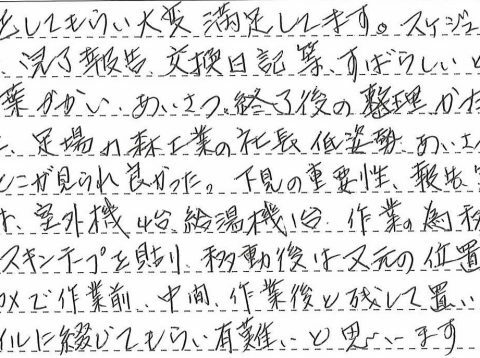 してもらい大変満足してます。スケジュ
、完了報告、交換日記等、すばらしい
葉づかい、あいさつ、終了後の整理かた
、足場の森工業の社長低姿勢、あいさ
とこが見られ良かった。下見の重要性、報告
、室外機4台、給湯機1台、作業の為移
スキンテープを貼り、移動後は又元の位置
メで作業前、中間、作業後と残して置い
イルに綴じてもらい有難いと思います